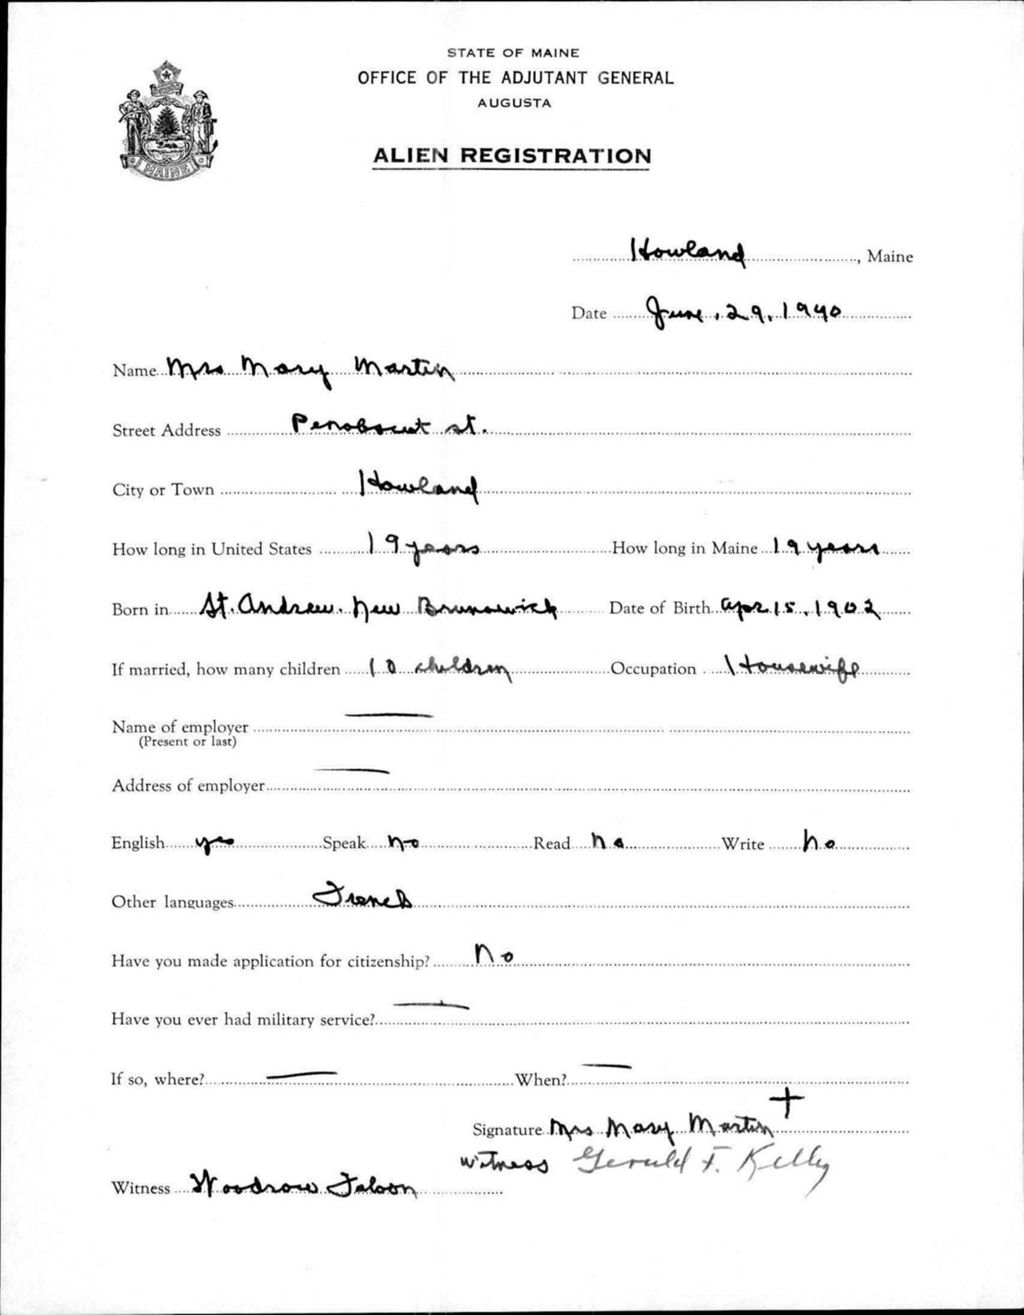 STATE OF MAINE
OFFICE OF THE ADJUTANT GENERAL
AUGUSTA
ALIEN REGISTRATION
MAINE
Howland, Maine
Date June, 29, 1940
Name Mrs Mary Martin
Street Address Penobscut st.
City or Town Howland
How long in United States 19 years How long in Maine 19 years
Born in St. Andrew. New Brunswick Date of Birth Apr 15, 1902
If married, how many children 10 children Occupation Housewife
Name of employer —
(Present or last)
Address of employer —
English yes Speak no Read no Write no
Other languages French
Have you made application for citizenship? No
Have you ever had military service? —
If so, where? — When? —
+
Signature Mrs Mary Martin
witness Gerald F. Kelly
Witness Woodrow Faloon